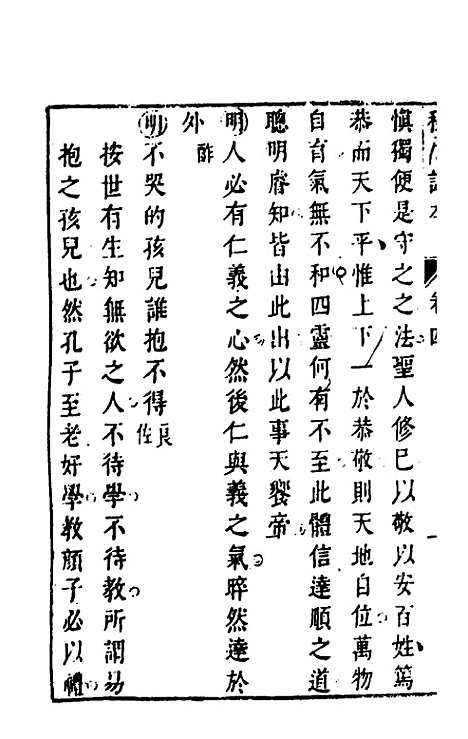 卷四
慎獨便是守之之法聖人修己以敬以安百姓篤
恭而天下平惟上下一於恭敬則天地自位萬物
自育氣無不和四靈何有不至此體信達順之道
聰明睿知皆由此出以此事天饗帝
明人必有仁義之心然後仁與義之氣睟然達於
外酢
明不哭的孩兒誰抱不得良佐
按世有生知無欲之人不待學不待教所謂易
抱之孩兒也然孔子至老好學教顏子必以禮